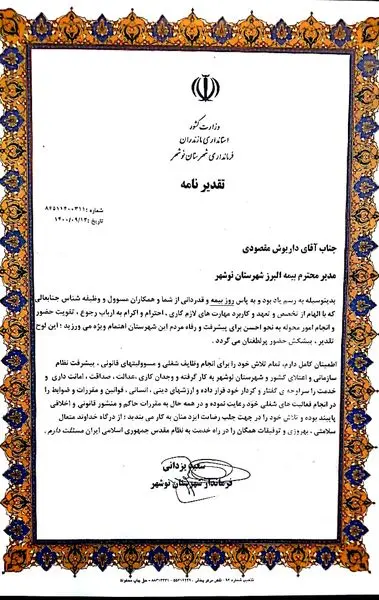 وزارت کشور
استانداری مازندران
فرمانداری شهرستان نوشهر
تقدیر نامه
شماره :۸۴۵۱۱۴۰۰۳۱۱
تاریخ :۱۴۰۰/۰۹/۱۳
جناب آقای داریوش مقصودی
مدیر محترم بیمه البرز شهرستان نوشهر
بدینوسیله به رسم یاد بود و به پاس روز بیمه و قدردانی از شما و همکاران مسوول و وظیفه شناس جنابعالی
که با الهام از تخصص و تعهد و کاربرد مهارت های لازم کاری ، احترام و اکرام به ارباب رجوع ، تقویت حضور
و انجام امور محوله به نحو احسن برای پیشرفت و رفاه مردم این شهرستان اهتمام ویژه می ورزید : این لوح
تقدیر ، پیشکش حضور پرلطفتان می گردد .
اطمینان کامل دارم، تمام تلاش خود را برای انجام وظایف شغلی و مسوولیتهای قانونی ، پیشرفت نظام
سازمانی و اعتلای کشور و شهرستان نوشهر به کار گرفته و وجدان کاری ،عدالت ، صداقت ، امانت داری و
خدمت را سرلوحه ی گفتار و کردار خود قرار داده و ارزشهای دینی ، انسانی ، قوانین و مقررات و ضوابط را
در انجام فعالیت های شغلی خود رعایت نموده و در همه حال به مقررات حاکم و منشور قانونی و اخلاقی
پایبند بوده و تلاش خود را در جهت جلب رضایت ایزد منان به کار می بندید ؛ از درگاه خداوند متعال
سلامتی ، بهروزی و توفیقات همگان را در راه خدمت به نظام مقدس جمهوری اسلامی ایران مسئلت دارم .
سعید یزدانی
فرماندار شهرستان نوشهر